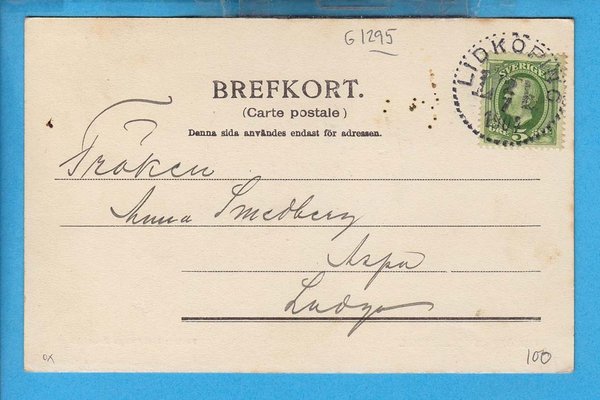 G1295
LIDKÖPING
SVERIGE
BREFKORT.
(Carte postale)
Denna sida användes endast för adressen.
Fröken
Anna Smedberg
Aspa
Ludgo
5
OX
100